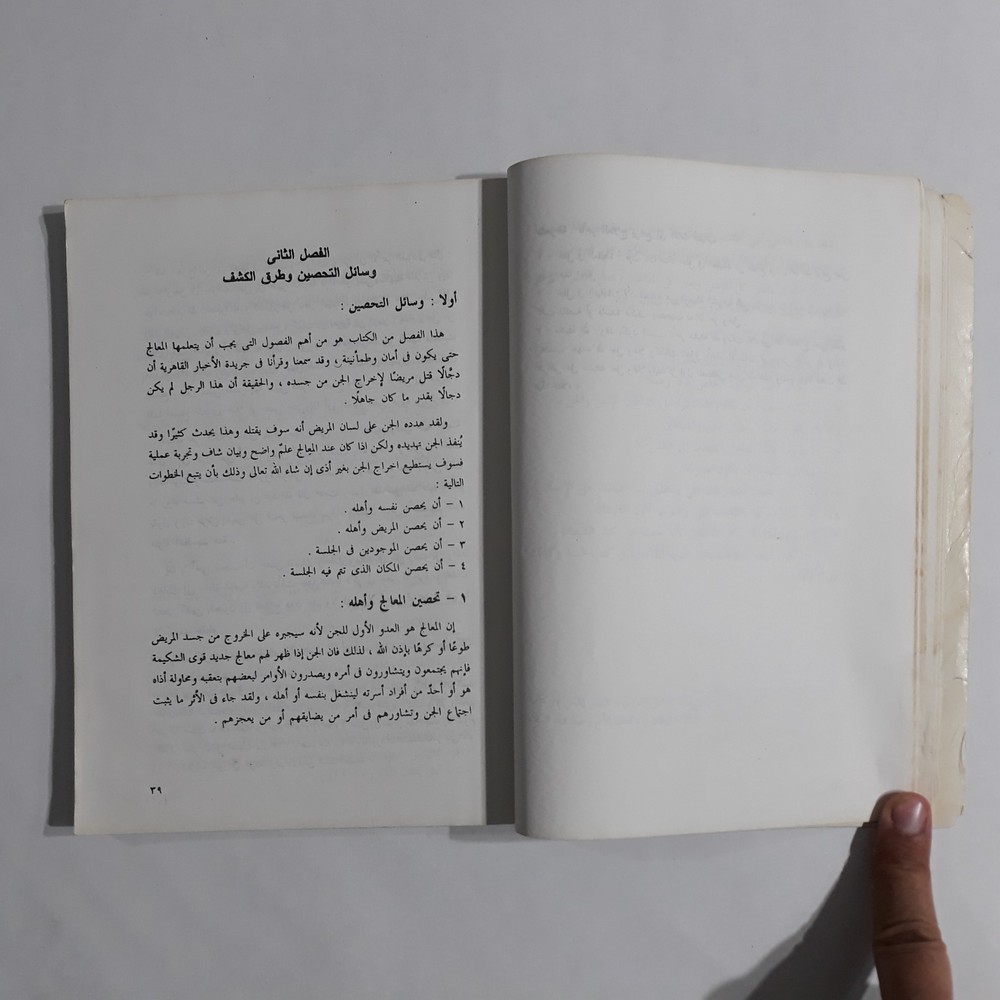 الفصل الثانى
وسائل التحصين وطرق الكشف
أولا : وسائل التحصين :
هذا الفصل من الكتاب هو من أهم الفصول التى يجب أن يتعلمها المعالج
حتى يكون فى أمان وطمأنينة ، وقد سمعنا وقرأنا فى جريدة الأخبار القاهرية أن
دجَّالًا قتل مريضًا لإخراج الجن من جسده ، والحقيقة أن هذا الرجل لم يكن
دجالًا بقدر ما كان جاهلًا .
ولقد هدده الجن على لسان المريض أنه سوف يقتله وهذا يحدث كثيرًا وقد
يُنفذ الجن تهديده ولكن اذا كان عند المعالج علمٌ واضح وبيان شاف وتجربة عملية
فسوف يستطيع اخراج الجن بغير أذى إن شاء الله تعالى وذلك بأن يتبع الخطوات
التالية :
١ – أن يحصن نفسه وأهله .
٢ – أن يحصن المريض وأهله .
٣ – أن يحصن الموجودين فى الجلسة .
٤ – أن يحصن المكان الذى تتم فيه الجلسة .
١ – تحصين المعالج وأهله :
إن المعالج هو العدو الأول للجن لأنه سيجبره على الخروج من جسد المريض
طوعًا أو كرهًا بإذن الله ، لذلك فان الجن إذا ظهر لهم معالج جديد قوى الشكيمة
فإنهم يجتمعون ويتشاورون فى أمره ويصدرون الأوامر لبعضهم بتعقبه ومحاولة أذاه
هو أو أحدٌ من أفراد أسرته لينشغل بنفسه أو أهله ، ولقد جاء فى الأثر ما يثبت
اجتماع الجن وتشاورهم فى أمر من يضايقهم أو من يعجزهم .
٣٩